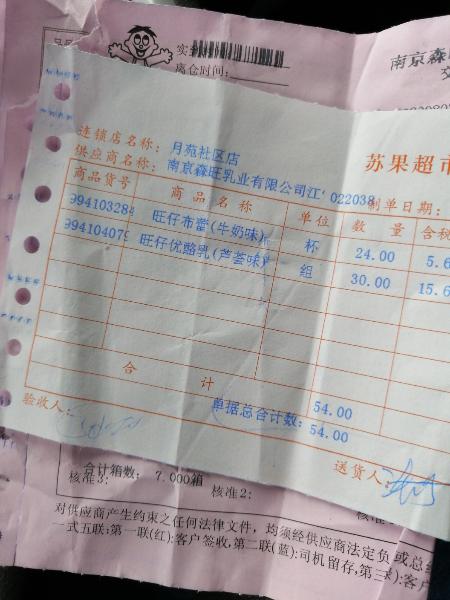 离仓时间:
南京森
苏果超市
连锁店名称: 月苑社区店
供应商名称: 南京森旺乳业有限公司江 022038
制单日期:
商品货号 商品名称 单位 数量 含税
994103284 旺仔布蕾(牛奶味) 杯 24.00 5.6
994104079 旺仔优酪乳(芦荟味) 组 30.00 15.6
合计 54.00
单据总合计数: 54.00
验收人:
送货人:
合计箱数: 7.000箱
核准3: 核准2: 核准
对供应商产生约束之任何法律文件,均须经供应商法定负
一式五联:第一联(红):客户签收,第二联(蓝):司机留存,第三